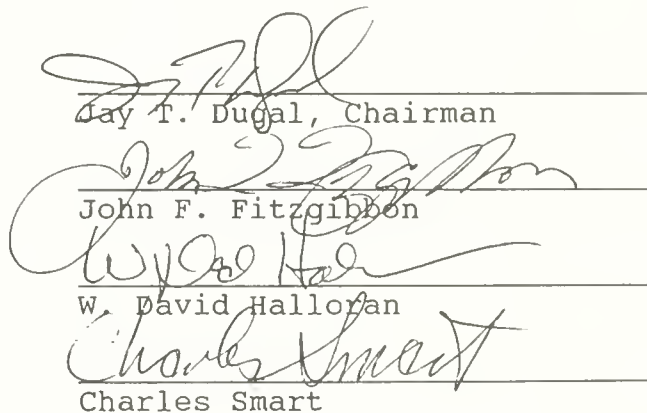 Jay T. Dugal, Chairman
John F. Fitzgibbon
W. David Halloran
Charles Smart
Charles Smart